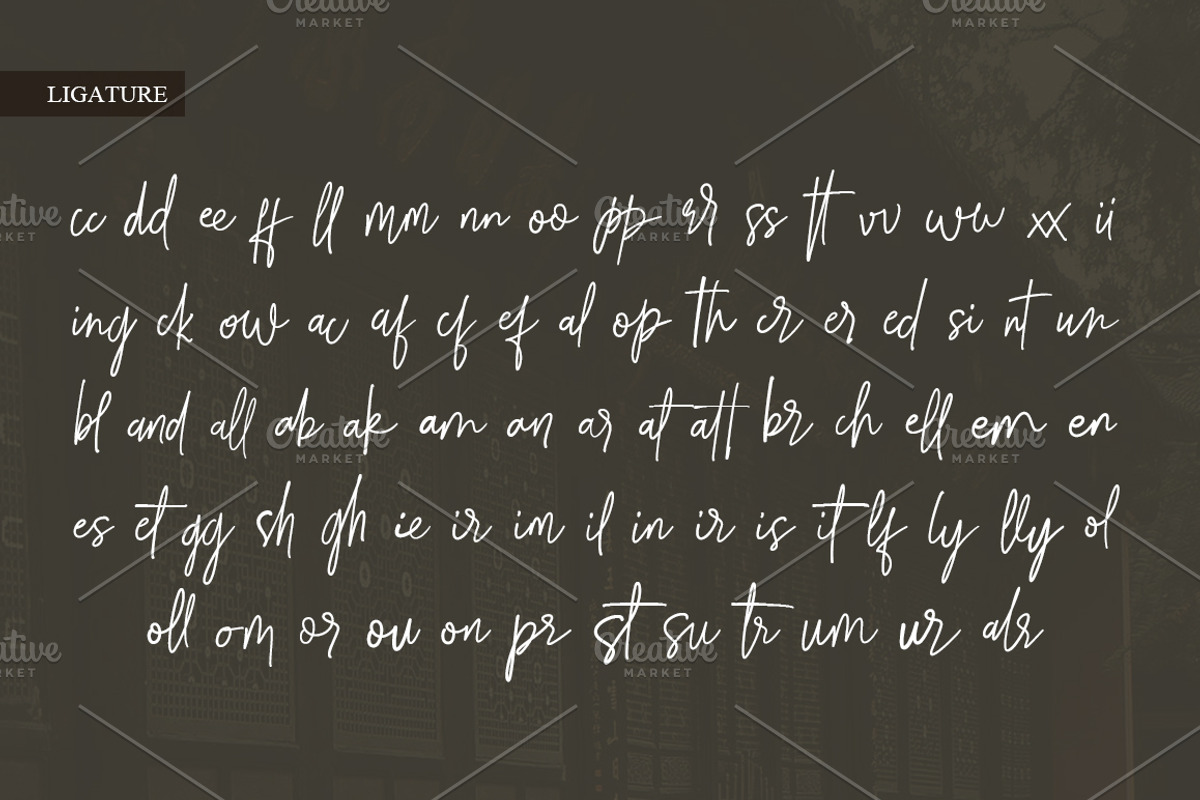 LIGATURE
cc dd ee ff ll mm nn oo pp rr ss tt vv ww xx ii
ing ck ow ac af cf ef al op th cr er ed si nt un
bl and all ab ak am an ar at att br ch ell em en
es et gg sh gh ie ir im il in ir is it lf ly lly ol
oll om or ou on pr st su tr um ur
Creative MARKET